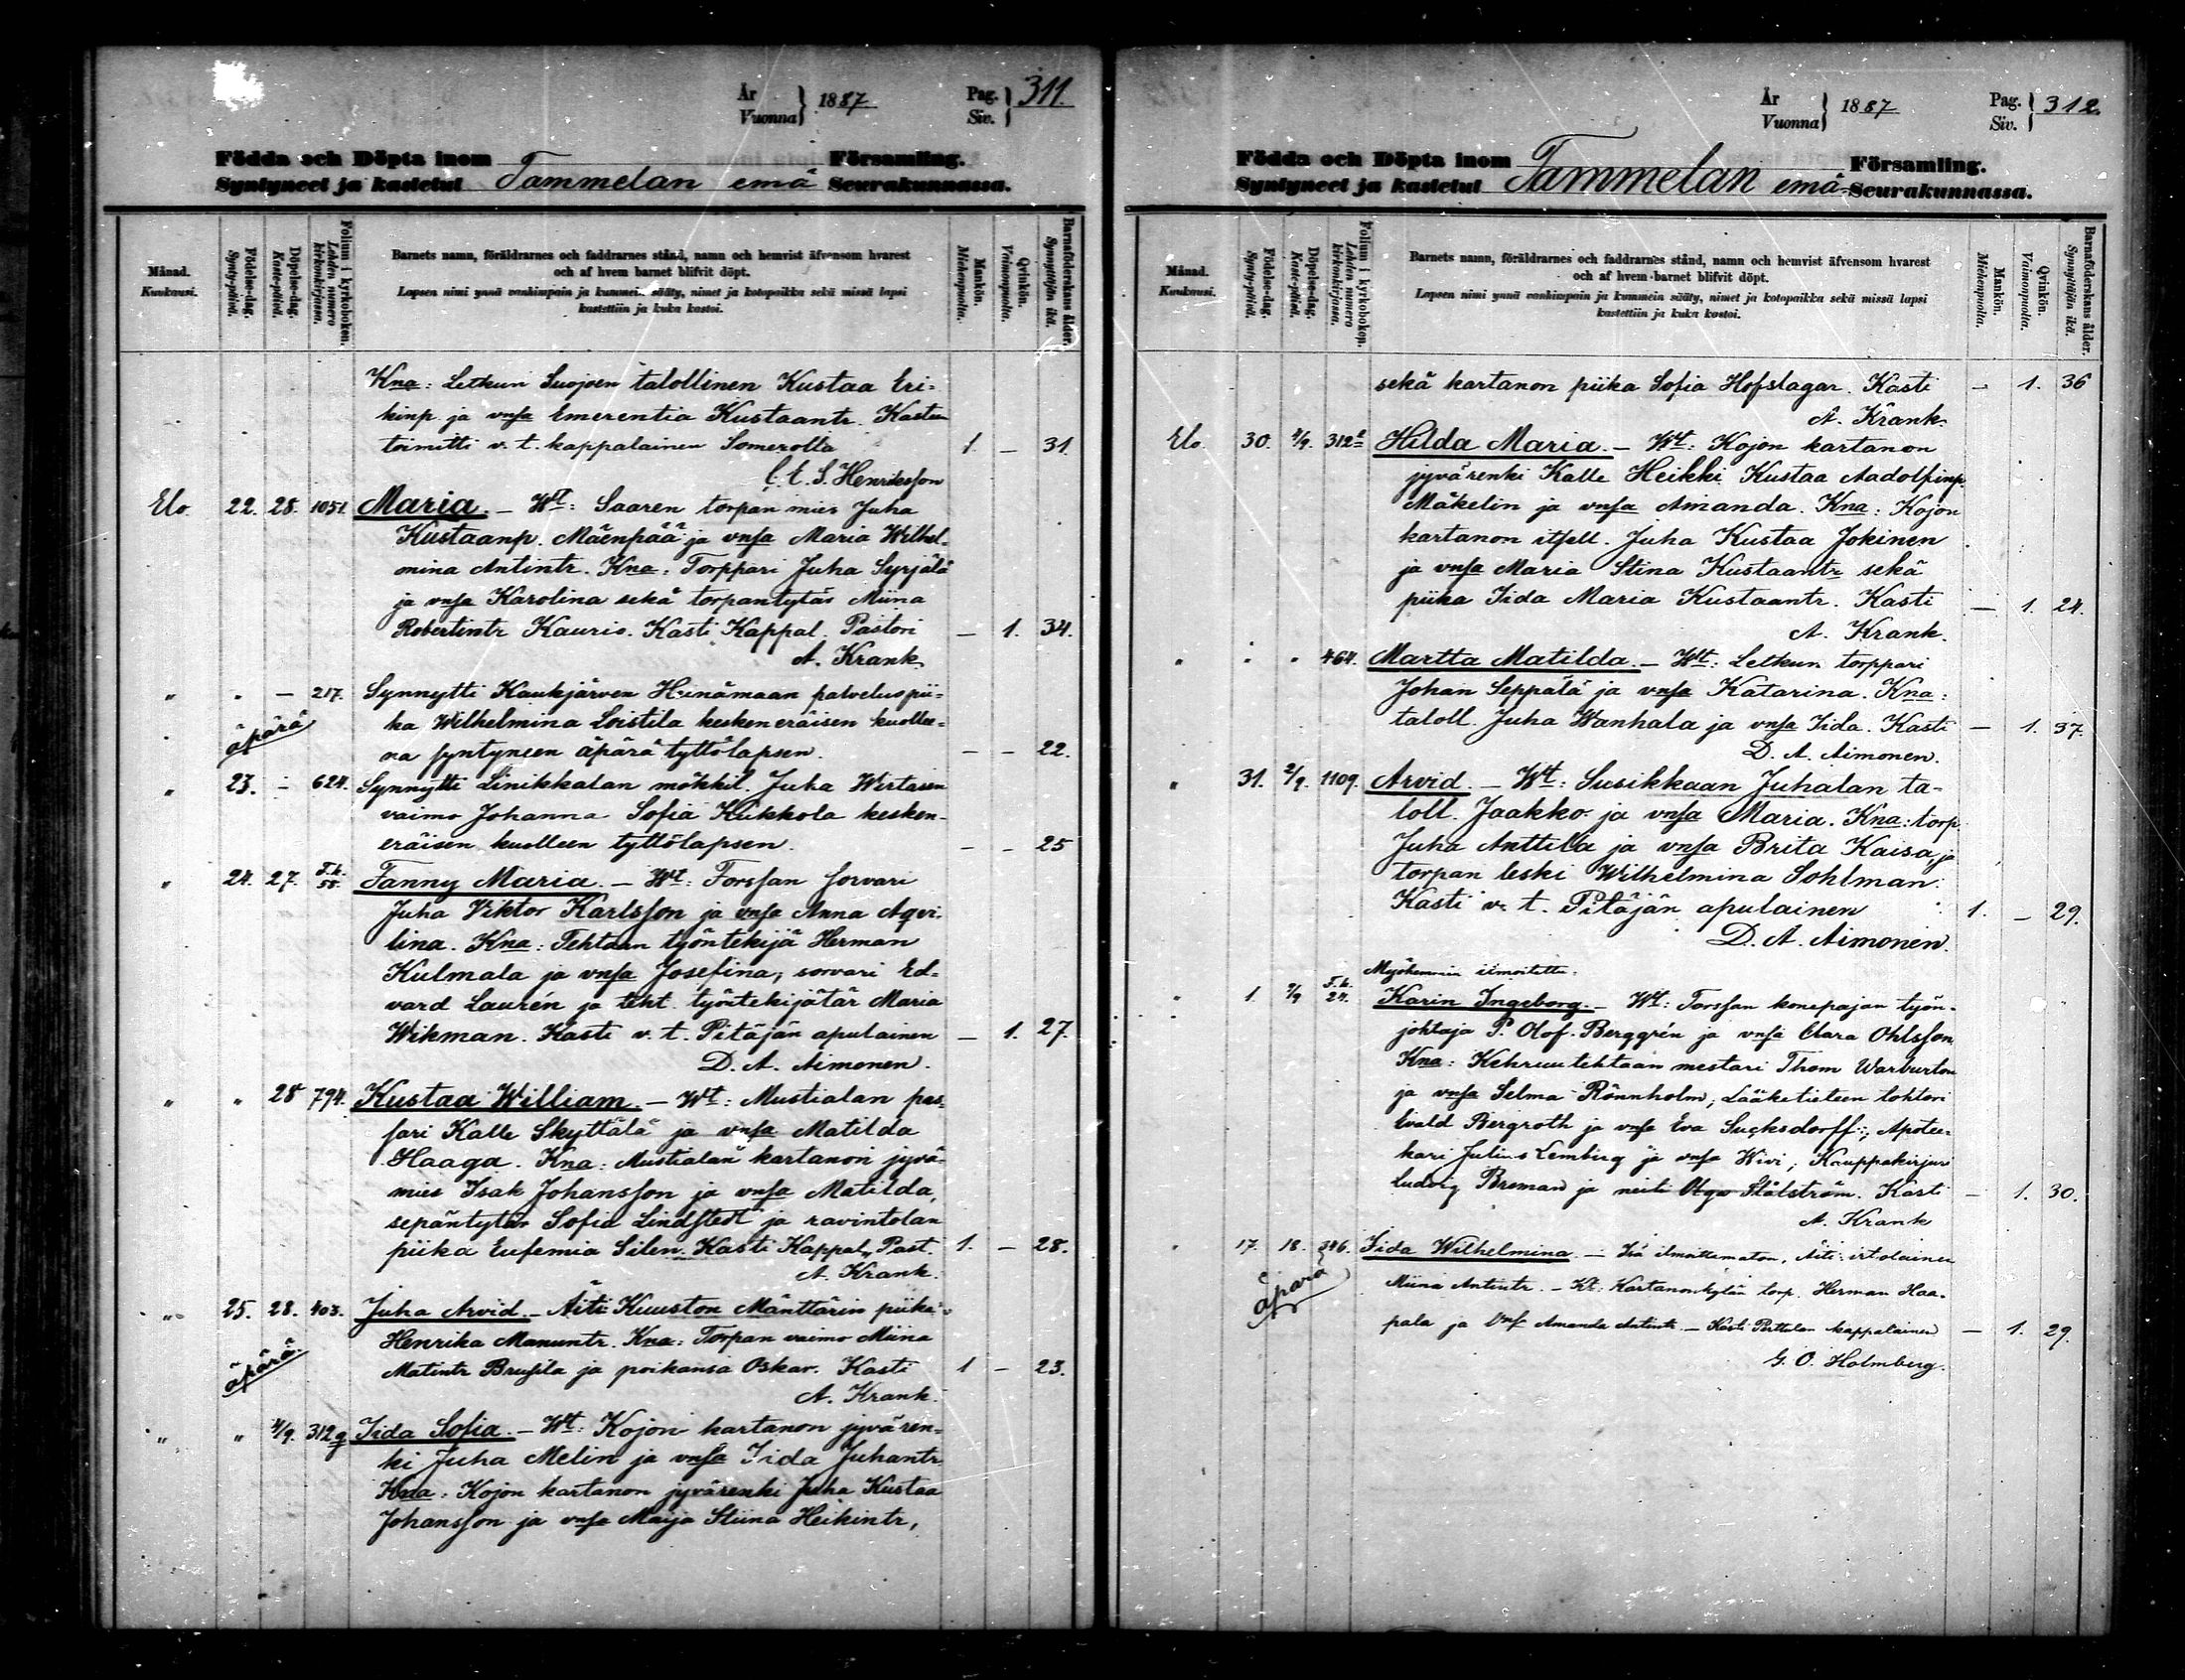 År
Vuonna } 1887
Pag.
Siv. } 311.
Födda och Döpta inom Församling.
Syntyneet ja kastetut Tammelan emä Seurakunnassa.
Månad.
Kuukausi.
Födelse-dag.
Synty-päivä.
Döpelse-dag.
Kaste-päivä.
Folium i kyrkoboken.
Lehden numero kirkonkirjassa.
Barnets namn, föräldrarnes och faddrarnes stånd, namn och hemvist äfvensom hvarest
och af hvem barnet blifvit döpt.
Lapsen nimi ynnä vanhimpain ja kummein sääty, nimet ja kotopaikka sekä missä lapsi
kastettiin ja kuka kastoi.
Mankön.
Miehenpuolta.
Qvinkön.
Vaimonpuolta.
Barnaföderskans ålder.
Synnyttäjän ikä.
Kna: Letkun Suojoen talollinen Kustaa Eri-
kinp. ja vnsa Emerentia Kustaantr. Kasteen
toimitti v. t. kappalainen Somerolla 1. — 31.
C. E. S. Henriksson
Elo. 22. 28. 1051. Maria. — Wt: Saaren torpan mies Juha
Kustaanp. Mäenpää ja vnsa Maria Wilhel-
mina Antintr. Kna: Torppari Juha Syrjälä
ja vnsa Karolina sekä torpantytär Miina
Robertintr Kaurio. Kasti Kappal. Pastori — 1. 34.
A. Krank.
" " — 217. Synnytti Kaukjärven Heinämaan palveluspii-
äpärä ka Wilhelmina Loistila keskeneräisen kuollee-
na syntyneen äpärä tyttölapsen. — — 22.
" 23. — 624. Synnytti Linikkalan mökkil. Juha Wirtasen
vaimo Johanna Sofia Kukkola kesken-
eräisen kuolleen tyttölapsen. — — 25
" 24. 27. F.k. 55. Fanny Maria. — Wt: Forssan sorvari
Juha Viktor Karlsson ja vnsa Anna Aqvi-
lina. Kna: Tehtaan työntekijä Herman
Kulmala ja vnsa Josefina; sorvari Ed-
vard Laurén ja teht. työntekijätär Maria
Wikman. Kasti v. t. Pitäjän apulainen — 1. 27.
D. A. Aimonen.
" " 28 794. Kustaa William. — Wt: Mustialan pas-
sari Kalle Skyttälä ja vnsa Matilda
Haaga. Kna: Mustialan kartanon jyvä-
mies Isak Johansson ja vnsa Matilda,
sepäntytär Sofia Lindstedt ja ravintolan
piika Eufemia Silen. Kasti Kappal. Past. 1. — 28.
A. Krank.
" 25. 28. 403. Juha Arvid. — Äiti: Kuuston Mänttärin piika
äpärä. Henrika Manuntr. Kna: Torpan vaimo Miina
Matintr Brusila ja poikansa Oskar. Kasti 1 — 23.
A. Krank.
" " 4/9. 312 g Iida Sofia. — Wt: Kojon kartanon jyvären-
ki Juha Melin ja vnsa Iida Juhantr.
Kna: Kojon kartanon jyvärenki Juha Kustaa
Johansson ja vnsa Maija Stiina Heikintr,
År
Vuonna } 1887
Pag.
Siv. } 312.
Födda och Döpta inom Församling.
Syntyneet ja kastetut Tammelan emä Seurakunnassa.
Månad.
Kuukausi.
Födelse-dag.
Synty-päivä.
Döpelse-dag.
Kaste-päivä.
Folium i kyrkoboken.
Lehden numero kirkonkirjassa.
Barnets namn, föräldrarnes och faddrarnes stånd, namn och hemvist äfvensom hvarest
och af hvem barnet blifvit döpt.
Lapsen nimi ynnä vanhimpain ja kummein sääty, nimet ja kotopaikka sekä missä lapsi
kastettiin ja kuka kastoi.
Mankön.
Miehenpuolta.
Qvinkön.
Vaimonpuolta.
Barnaföderskans ålder.
Synnyttäjän ikä.
sekä kartanon piika Sofia Hofslagar. Kasti — 1. 36
A. Krank.
Elo. 30. 4/9. 312 Hilda Maria. — Wt: Kojon kartanon
jyvärenki Kalle Heikki Kustaa Aadolfinp.
Mäkelin ja vnsa Amanda. Kna: Kojon
kartanon itsell. Juha Kustaa Jokinen
ja vnsa Maria Stina Kustaantr sekä
piika Iida Maria Kustaantr. Kasti — 1. 24.
A. Krank.
" " " 464. Martta Matilda. — Wt: Letkun torppari
Johan Seppälä ja vnsa Katarina. Kna:
taloll. Juha Wanhala ja vnsa Iida. Kasti — 1. 37.
D. A. Aimonen.
" 31. 2/9. 1109. Arvid. — Wt: Susikkaan Juhalan ta-
loll. Jaakko ja vnsa Maria. Kna: torp.
Juha Anttila ja vnsa Brita Kaisa, ja
torpan leski Wilhelmina Sohlman.
Kasti v. t. Pitäjän apulainen 1. — 29.
D. A. Aimonen.
Myöhemmin ilmoitettu:
" 1. 7/9 F.k. 24. Karin Ingeborg. — Wt: Forssan konepajan työn-
johtaja P. Olof Berggrén ja vnsa Clara Ohlsson.
Kna: Kehruutehtaan mestari Thom Warburton
ja vnsa Selma Rönnholm; Lääketieteen tohtori
Evald Bergroth ja vnsa Eva Sucksdorff; Apotee-
kari Julius Lemberg ja vnsa Wivi; Kauppakirjuri
Ludvig Breman ja neiti Olga Stålström. Kasti — 1. 30.
A. Krank
" 17. 18. 346. Iida Wilhelmina. — Isä ilmoittamaton, Äiti: irtolainen
äpärä Miina Antintr. — Kt: Kartanonkylän torp. Herman Haa-
pala ja Vnsa Amanda Antintr. — Kasti Perttulan kappalainen — 1. 29.
G. O. Holmberg.